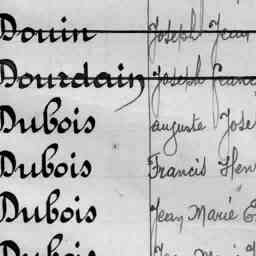 Douin Joseph Jean
Dourdain Joseph Franc
Dubois auguste Jose
Dubois Francis Hen
Dubois Jean Marie
Dubois